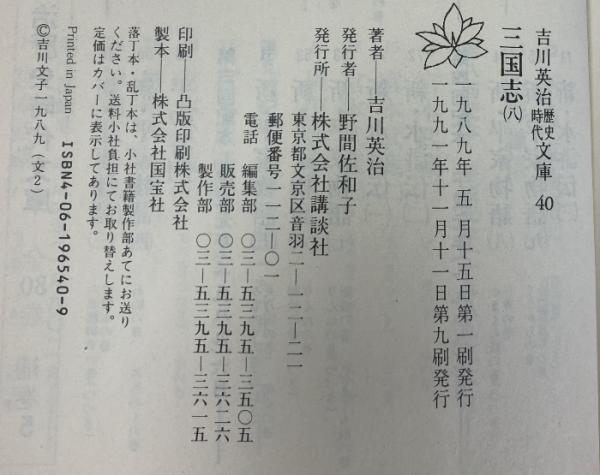 吉川英治歴史時代文庫 40
三国志(八)
一九八九年 五 月十五日第一刷発行
一九九一年十一月十一日第九刷発行
著者―吉川英治
発行者―野間佐和子
発行所―株式会社講談社
東京都文京区音羽二―一二―二一
郵便番号一一二―〇一
電話 編集部 〇三―五三九五―三五〇五
販売部 〇三―五三九五―三六二六
製作部 〇三―五三九五―三六一五
印刷―凸版印刷株式会社
製本―株式会社国宝社
落丁本・乱丁本は、小社書籍製作部あてにお送り
ください。送料小社負担にてお取り替えします。
定価はカバーに表示してあります。
Printed in Japan ISBN4-06-196540-9
©吉川文子一九八九 (文2)